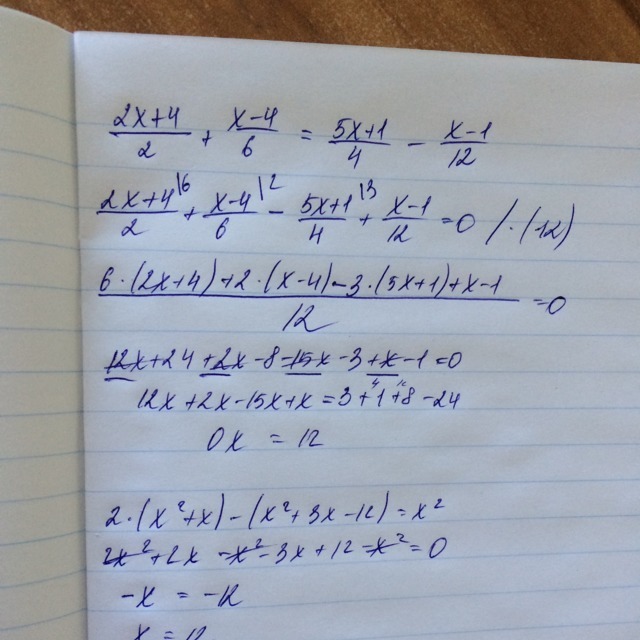 (2x+4)/2 + (x-4)/6 = (5x+1)/4 - (x-1)/12
(2x+4)/2 \6 + (x-4)/6 \2 - (5x+1)/4 \3 + (x-1)/12 = 0 / · (12)
(6·(2x+4)+2·(x-4)-3·(5x+1)+x-1)/12 = 0
12x+24+2x-8-15x-3+x-1=0
12x+2x-15x+x=3+1+8-24
0x = 12
2·(x²+x)-(x²+3x-12)=x²
2x²+2x-x²-3x+12-x²=0
-x = -12
x = 12